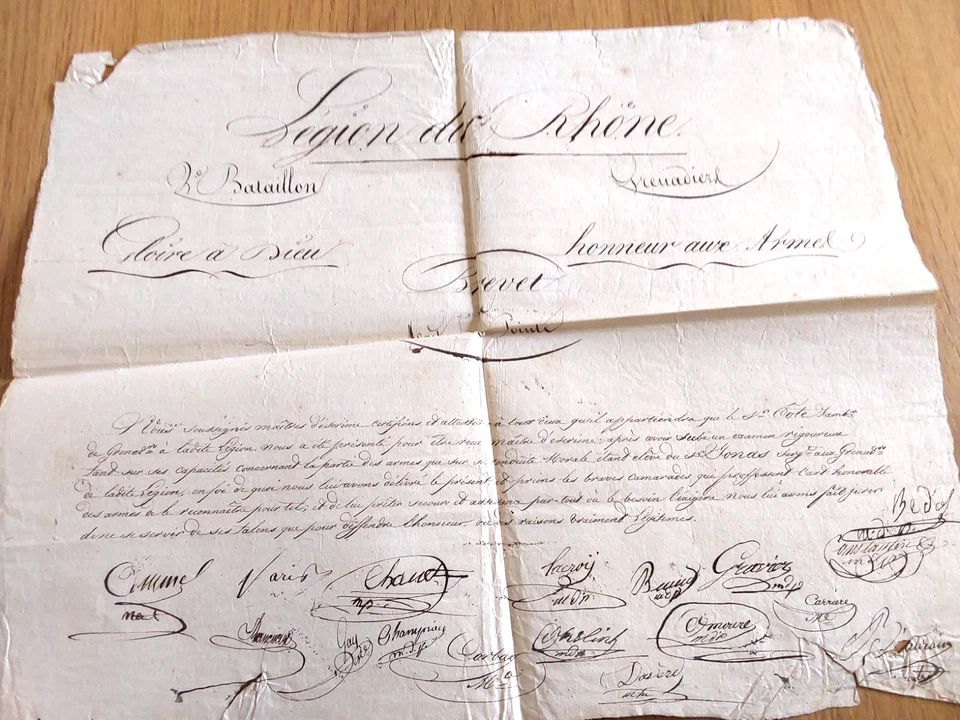 Légion du Rhône
2e Bataillon Grenadiers
Gloire à Dieu honneur aux Armes
Brevet
Pointe
Nous soussignés maîtres d'escrime certifions et attestons à tous ceux qu'il appartiendra que le Sr. Cote Tambr.
de Grenadrs. à ladite Légion nous a été présenté pour être reçu maître d'escrime après avoir subi un examen rigoureux
tant sur ses capacités concernant la partie des armes que sur sa conduite Morale étant élève du Sr. Jonas Sergt. aux Grenadrs.
de ladite Légion, en foi de quoi nous lui avons délivré le présent et prions les braves camarades qui professent l'art honorable
des armes de le reconnaître pour tel, et de lui prêter secours et par-tout où le besoin l'exigera. Nous lui avons fait jurer
de ne se servir de ses talens que pour deffendre l'honneur, ou des raisons vraiment légitimes.
Bédos
m.d.p.
Constantin
m.d.p.
Paris Chauet Lacroix Gravier
m.d.p. m.d.p. m.d.p.
Carrare
Jay Champnay Amoure
m.d.p. m.d.p.